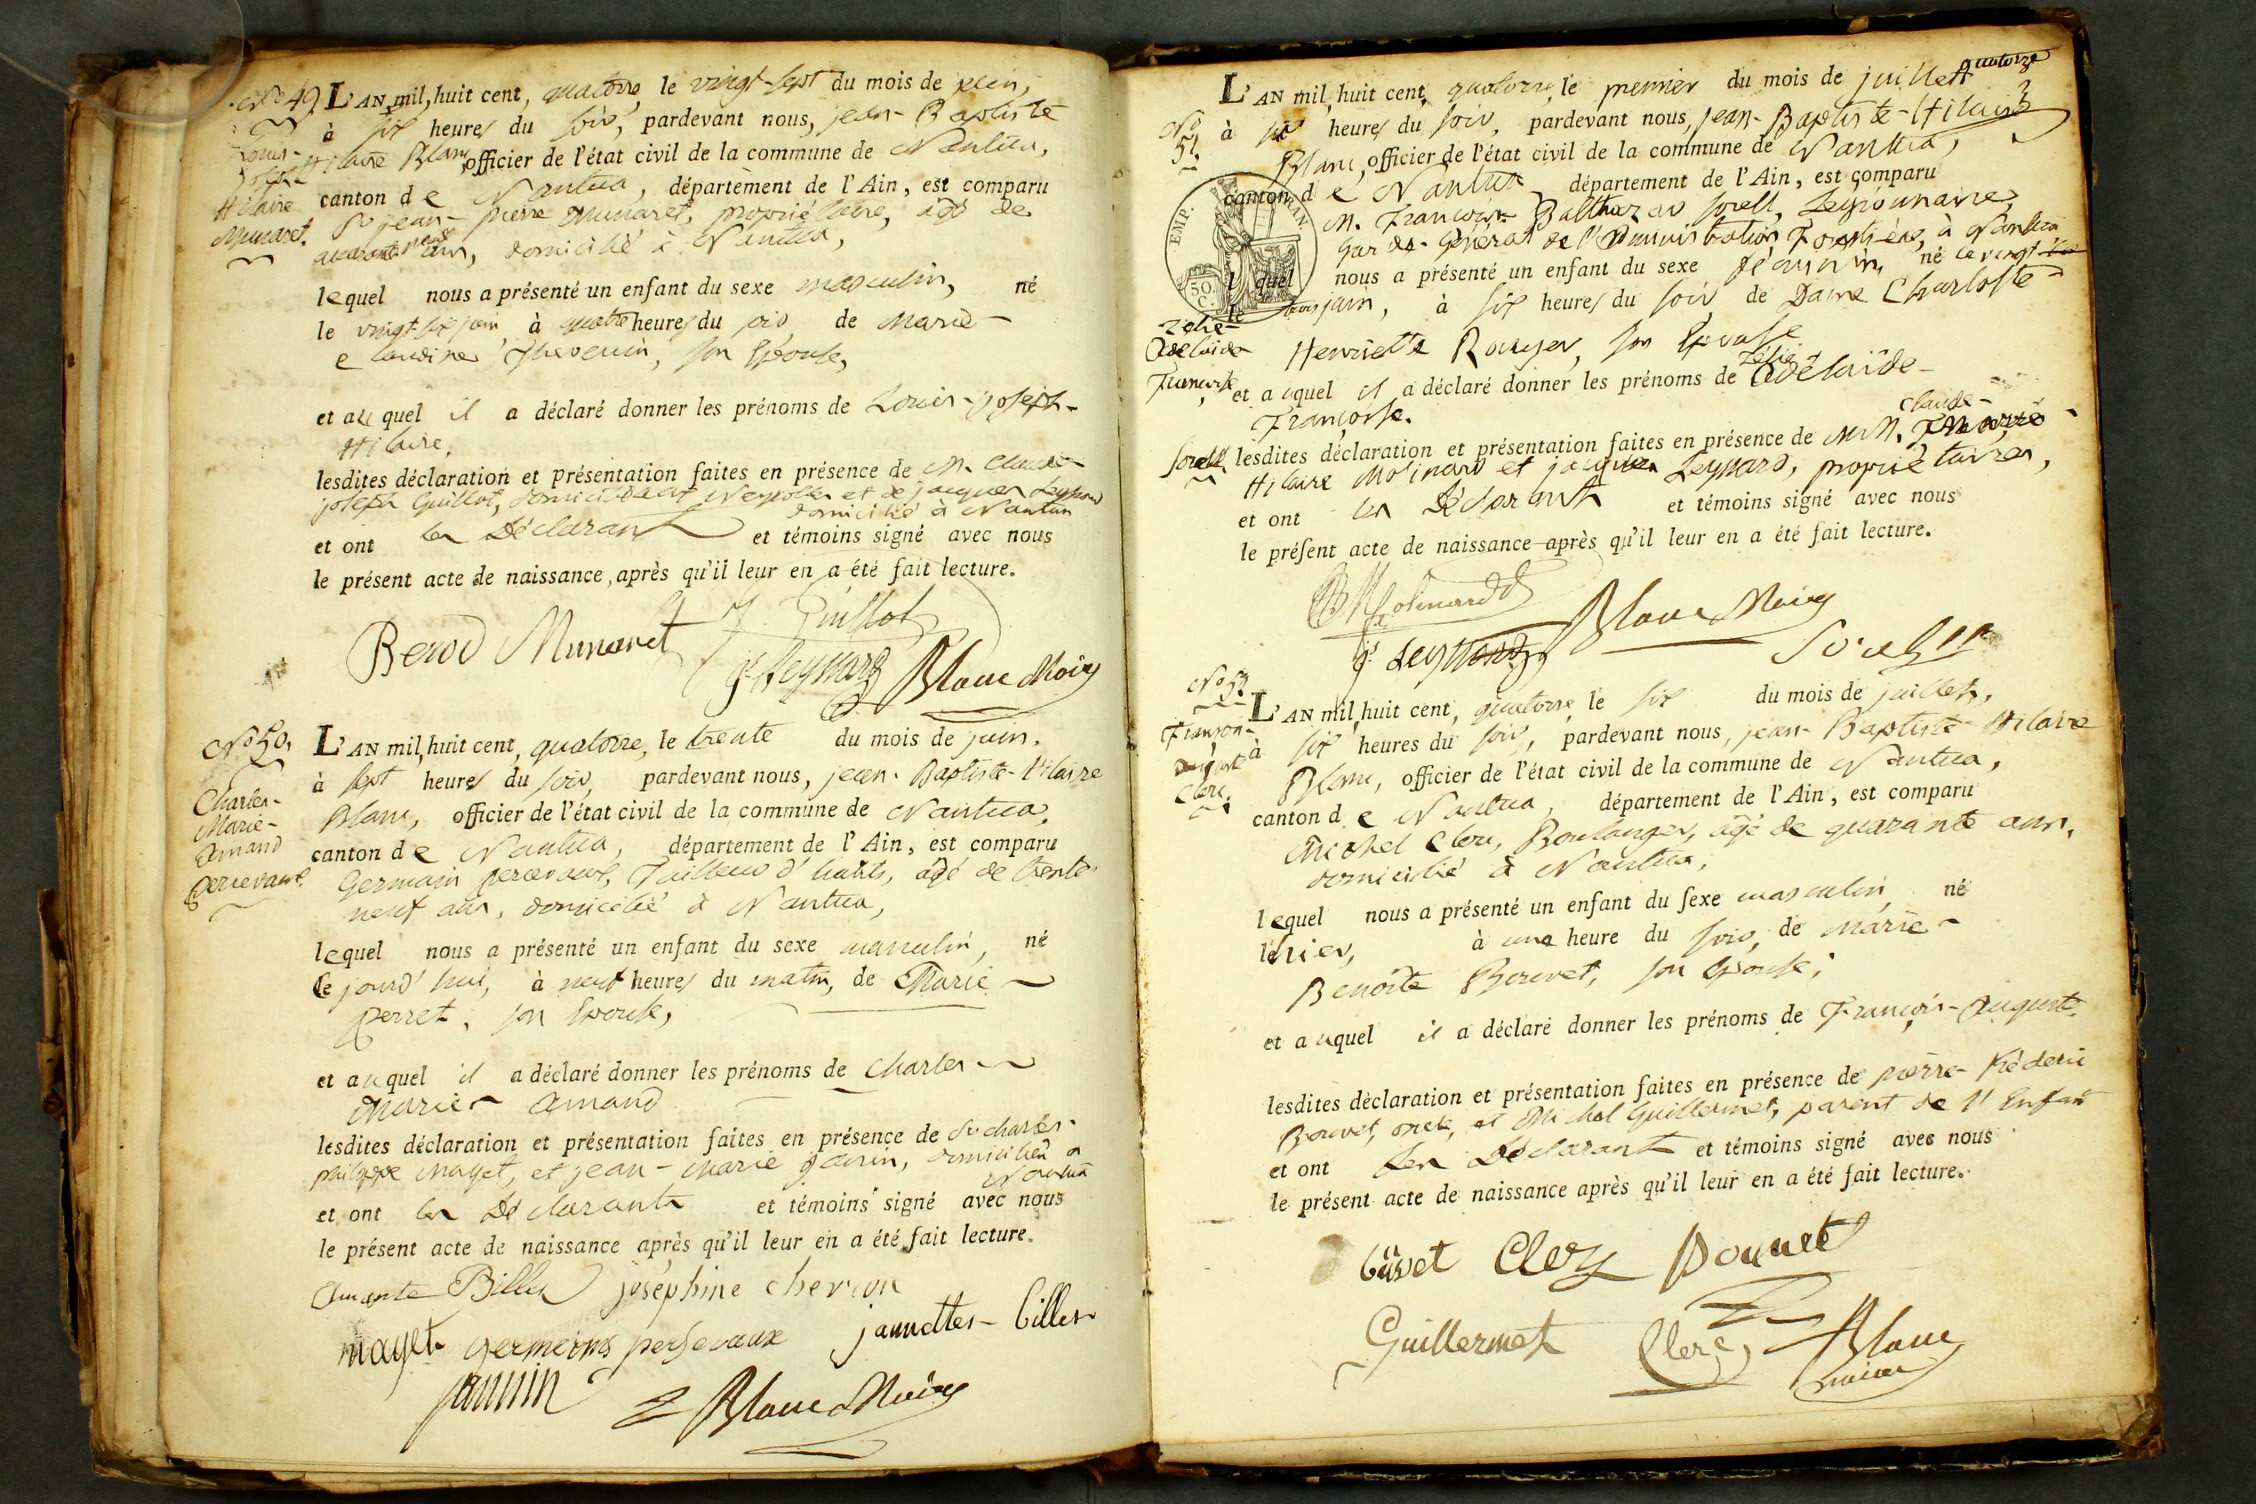 N° 49.
Louis-
Joseph
Hilaire
Munaret.
L'AN mil, huit cent, quatorze, le vingt-sept du mois de juin,
à six heures du soir, pardevant nous, jean-Baptiste
Hilaire Blanc, officier de l'état civil de la commune de Nantua,
canton de Nantua, département de l'Ain, est comparu
Sr jean-pierre Munaret, propriétaire, âgé de
quarante neuf ans, domicilié à Nantua,
lequel nous a présenté un enfant du sexe masculin, né
le vingt-six juin à quatre heures du soir de Marie-
Claudine Thevenin, son Epouse,
et auquel il a déclaré donner les prénoms de Louis-joseph-
Hilaire,
lesdites déclaration et présentation faites en présence de M. Claude-
joseph Guillot, domicilié et de jacques Leynard
domicilié à Nantua
et ont les Déclarant et témoins signé avec nous
le présent acte de naissance, après qu'il leur en a été fait lecture.
Benod Munaret J Guillot
J. Leynard Blanc Maire
N° 50.
Charles-
Marie-
Amand
percevaux.
L'AN mil, huit cent, quatorze, le trente du mois de juin,
à sept heures du soir, pardevant nous, jean-Baptiste-Hilaire
Blanc, officier de l'état civil de la commune de Nantua,
canton de Nantua, département de l'Ain, est comparu
Germain percevaux, Tailleur d'habits, âgé de trente
neuf ans, domicilié à Nantua,
lequel nous a présenté un enfant du sexe masculin, né
Ce jourd'hui, à neuf heures du matin, de Marie
perret, son Epouse,
et auquel il a déclaré donner les prénoms de Charles
Marie Amand
lesdites déclaration et présentation faites en présence de Sr charles-
philippe Mayet, et jean-Marie janin, domiciliés à
Nantua
et ont les Déclarants et témoins signé avec nous
le présent acte de naissance après qu'il leur en a été fait lecture.
Amante Billes joséphine chevron
mayet germeins persevaux jannettes Billes
jannin Blanc Maire
quatorze
N° 51.
Zélie-
Adelaide
Françoise
Sorell
EMP.
FRAN.
50.
C.
L'AN mil, huit cent, quatorze, le premier du mois de juillet
à six heures du soir, pardevant nous, jean-Baptiste-Hilaire
Blanc, officier de l'état civil de la commune de Nantua,
canton de Nantua, département de l'Ain, est comparu
M. François Balthazar Sorell, Légionnaire,
Garde-Général de l'administration Forestière, à Nantua
lequel nous a présenté un enfant du sexe féminin, né le vingt
le trois juin, à six heures du soir de Dame Charlotte
Henriette Rouyer, son Epouse
et auquel il a déclaré donner les prénoms de Zélie Adélaïde-
Françoise.
Claude-
lesdites déclaration et présentation faites en présence de MM.
Hilaire Molinard et jacques Leynard, propriétaires,
et ont les Déclarants et témoins signé avec nous
le présent acte de naissance après qu'il leur en a été fait lecture.
Molinard Blanc Maire
J. Leynard Sorell
N° 52
François-
August
Clerc.
L'AN mil, huit cent, quatorze, le six du mois de juillet,
à six heures du soir, pardevant nous, jean-Baptiste-Hilaire
Blanc, officier de l'état civil de la commune de Nantua,
canton de Nantua, département de l'Ain, est comparu
Michel Clerc, Boulanger, âgé de quarante ans,
domicilié à Nantua,
lequel nous a présenté un enfant du sexe masculin, né
hier, à une heure du soir, de Marie-
Benoite Bouvet, son Epouse,
et auquel il a déclaré donner les prénoms de François-Auguste.
lesdites déclaration et présentation faites en présence de pierre-Fréderic
Bouvet, oncle, et Michel Guillermet, parent de l'Enfant
et ont les Déclarants et témoins signé avec nous
le présent acte de naissance après qu'il leur en a été fait lecture.
Clerc Bouvet
Guillermet Clerc Blanc
maire